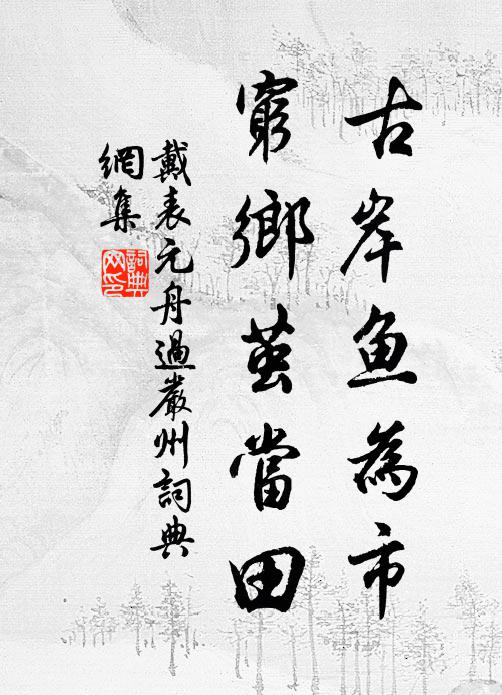 古岸魚為市
窮鄉茧當田
戴表元舟過嚴州詞典
網集
詞典
网印